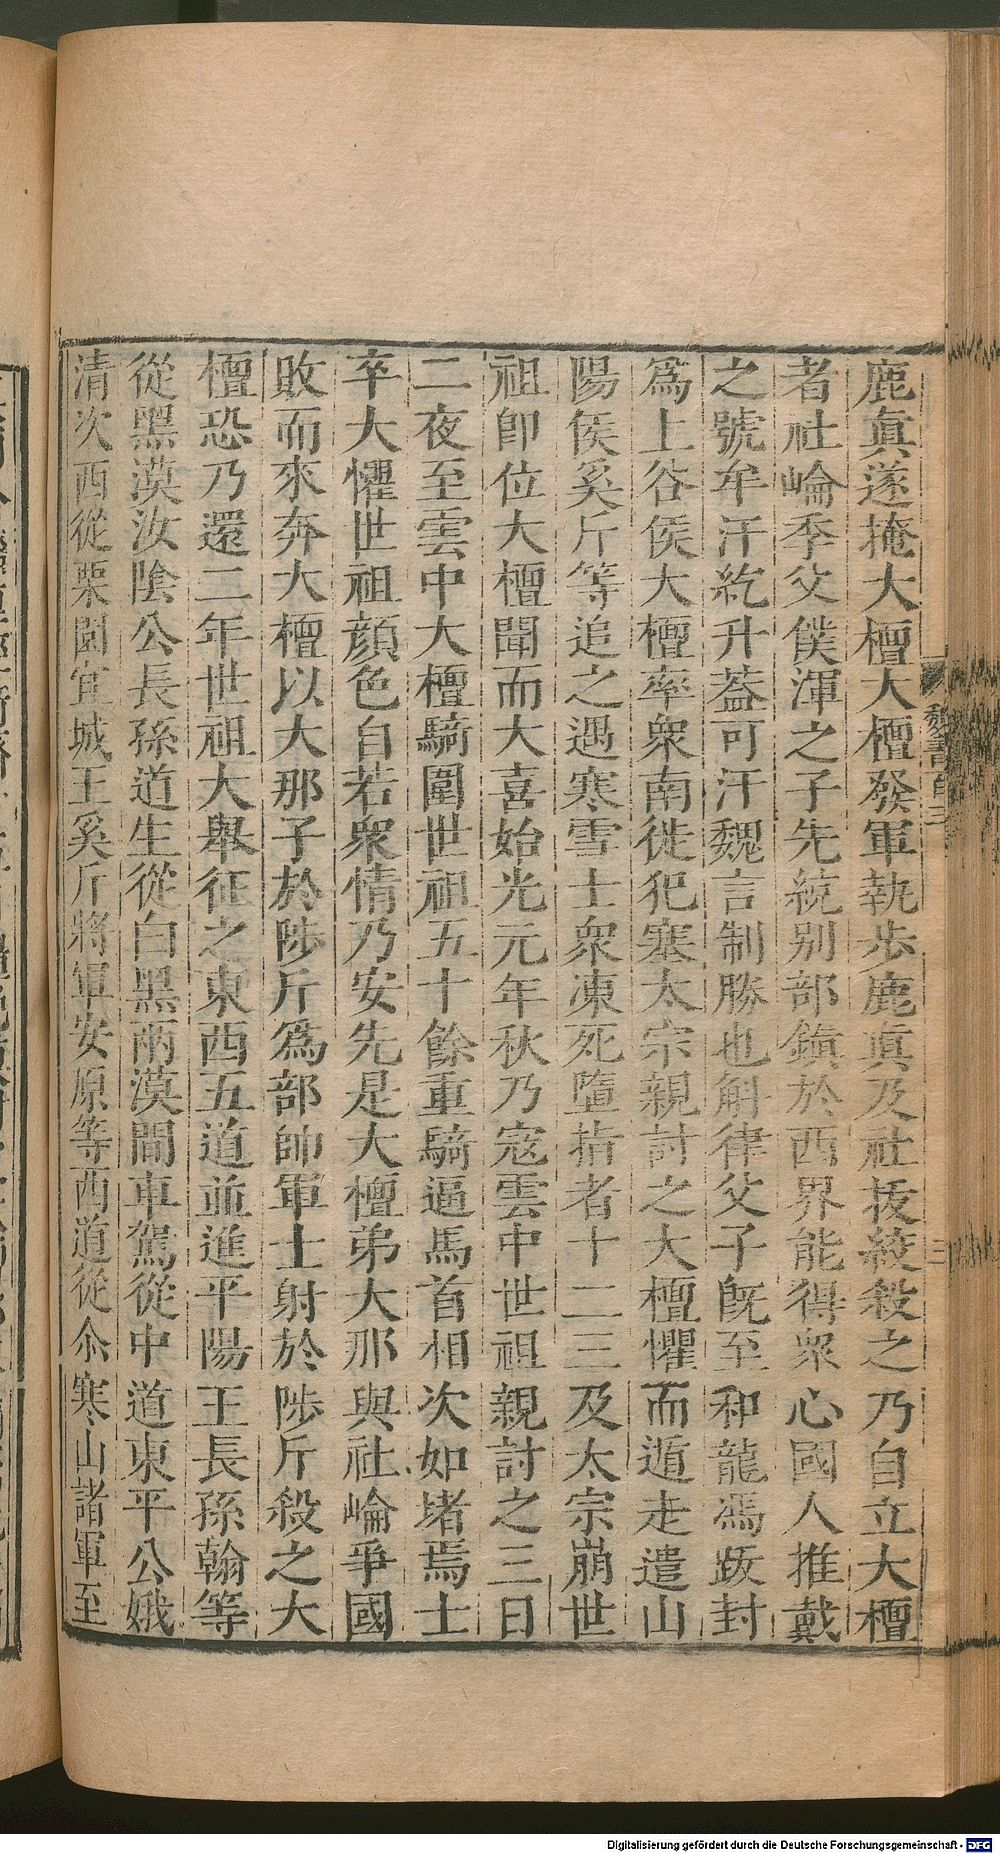 鹿眞遂掩大檀大檀發軍執步鹿眞及社拔絞殺之乃自立大檀
者社崘季父僕渾之子先統別部鎭於西界能得衆心國人推戴
之號牟汗紇升葢可汗魏言制勝也斛律父子旣至和龍馮跋封
爲上谷侯大檀率衆南徙犯塞太宗親討之大檀懼而遁走遣山
陽侯奚斤等追之遇寒雪士衆凍死墮指者十二三及太宗崩世
祖卽位大檀聞而大喜始光元年秋乃寇雲中世祖親討之三日
二夜至雲中大檀騎圍世祖五十餘重騎逼馬首相次如堵焉士
卒大懼世祖顔色自若衆情乃安先是大檀弟大那與社崘爭國
敗而來奔大檀以大那子於陟斤爲部帥軍士射於陟斤殺之大
檀恐乃還二年世祖大舉征之東西五道並進平陽王長孫翰等
從黑漠汝陰公長孫道生從白黑兩漠間車駕從中道東平公娥
清次西從栗園宜城王奚斤將軍安原等西道從尒寒山諸軍至
魏書百三
三
Digitalisierung gefördert durch die Deutsche Forschungsgemeinschaft - DFG